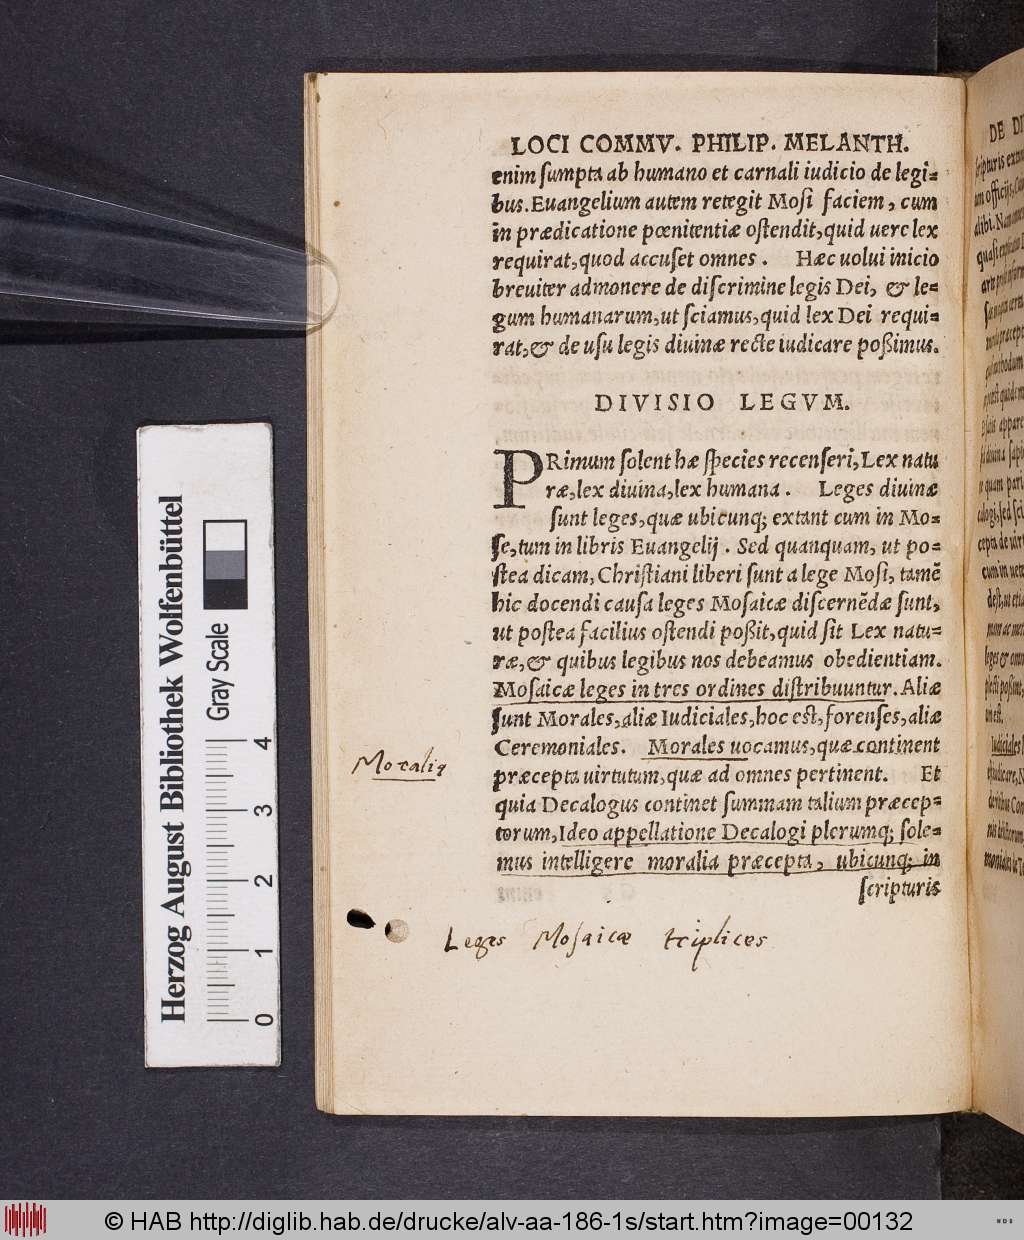 LOCI COMMV. PHILIP. MELANTH.
enim ſumpta ab humano et carnali iudicio de legi⸗
bus. Euangelium autem retegit Moſi faciem, cum
in prædicatione pœnitentiæ oſtendit, quid uere lex
requirat, quod accuſet omnes. Hæc uolui inicio
breuiter admonere de diſcrimine legis Dei, & le⸗
gum humanarum, ut ſciamus, quid lex Dei requi⸗
rat, & de uſu legis diuinæ recte iudicare poßimus.
DIVISIO LEGVM.
PRimum ſolent hæ ſpecies recenſeri, Lex natu
ræ, lex diuina, lex humana. Leges diuinæ
ſunt leges, quæ ubicunq; extant cum in Mo⸗
ſe, tum in libris Euangelij. Sed quanquam, ut po⸗
ſtea dicam, Chriſtiani liberi ſunt a lege Moſi, tamẽ
hic docendi cauſa leges Moſaicæ diſcernẽdæ ſunt,
ut poſtea facilius oſtendi poßit, quid ſit Lex natu⸗
ræ, & quibus legibus nos debeamus obedientiam.
Moſaicæ leges in tres ordines diſtribuuntur. Aliæ
ſunt Morales, aliæ Iudiciales, hoc eſt, forenſes, aliæ
Ceremoniales. Morales uocamus, quæ continent
præcepta uirtutum, quæ ad omnes pertinent. Et
quia Decalogus continet ſummam talium præcep⸗
torum, Ideo appellatione Decalogi plerumq; ſole⸗
mus intelligere moralia præcepta, ubicunq; in
ſcripturis
Moralia
Leges Moſaicæ triplices
DE DI
Herzog August Bibliothek Wolfenbüttel
Gray Scale
0 1 2 3 4
© HAB http://diglib.hab.de/drucke/alv-aa-186-1s/start.htm?image=00132